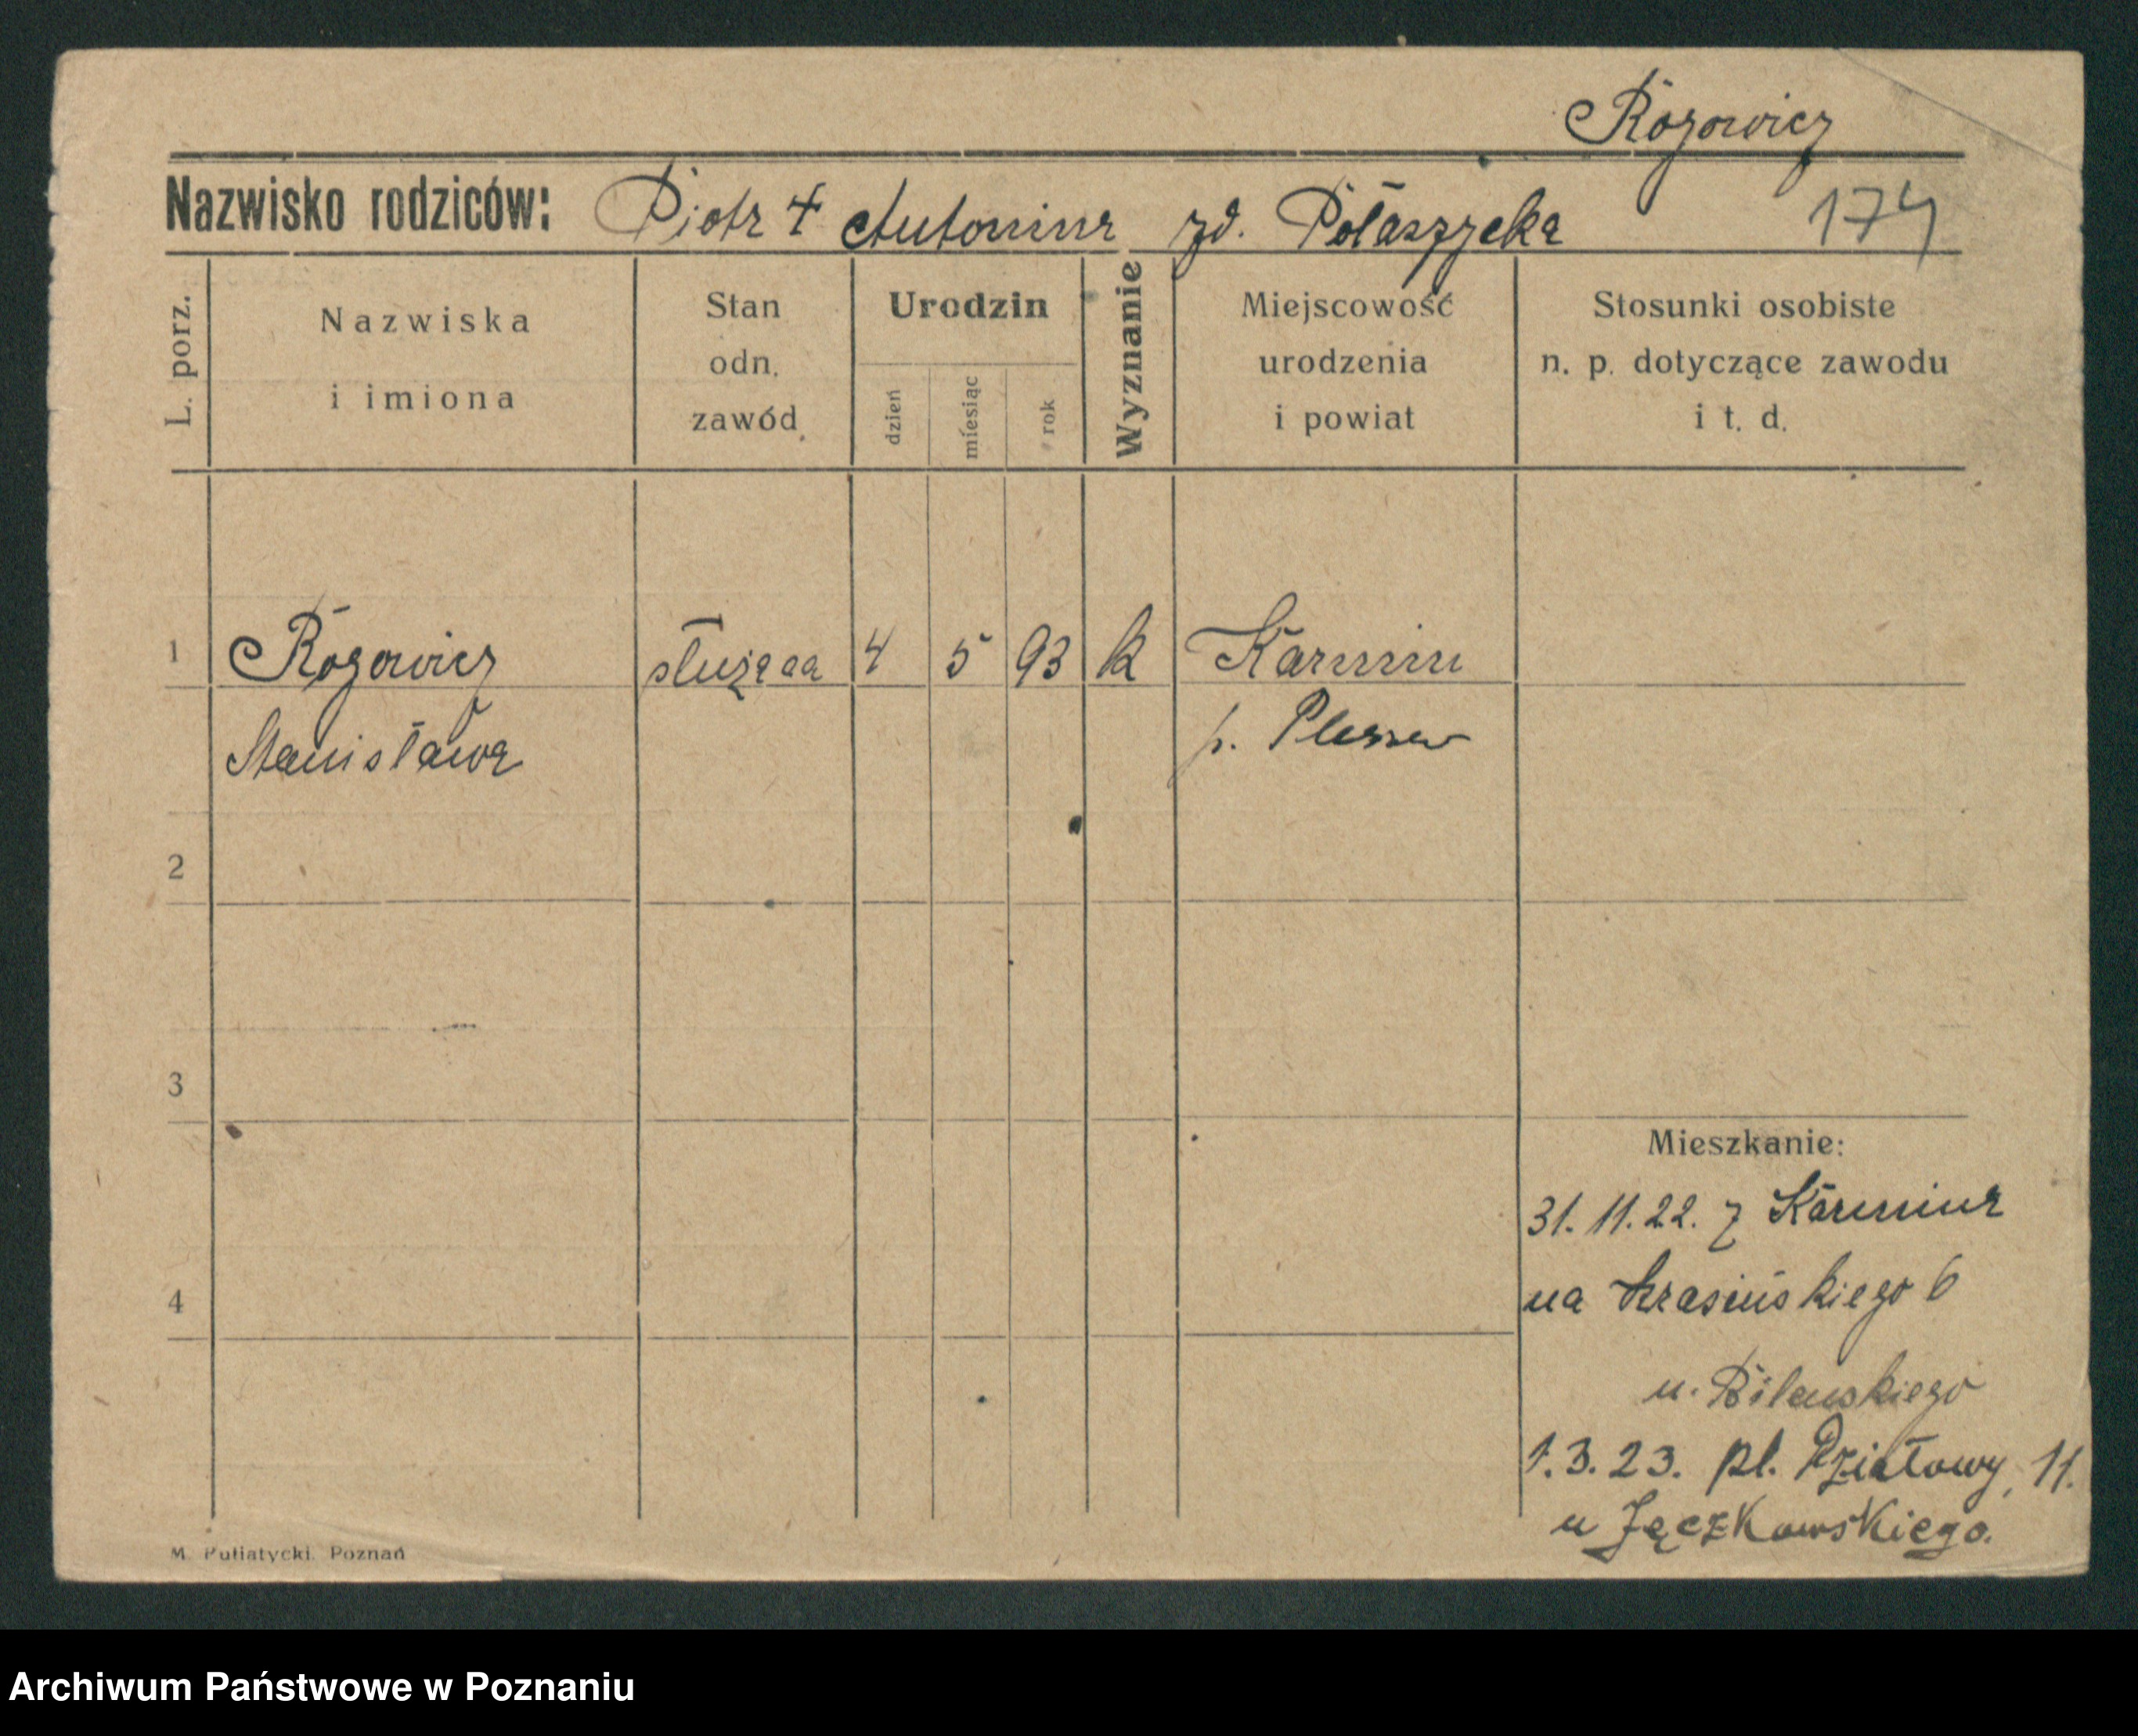 Rogowicz
Nazwisko rodziców: Piotr + Antonina zd. Połaszycka 174
L. porz.
Nazwiska i imiona
Stan odn. zawód
Urodzin
dzień
miesiąc
rok
Wyznanie
Miejscowość urodzenia i powiat
Stosunki osobiste n. p. dotyczące zawodu i t. d.
1 Rogowicz służąca 4 5 93 k Karmin
Stanisława p. Pleszew
2
3
Mieszkanie:
31. 11. 22. z Karmina
na Krasińskiego 6
4
u.
1. 3. 23. pl. Działowy, 11.
u Jęczkowskiego.
M. Putiatycki. Poznań
Archiwum Państwowe w Poznaniu